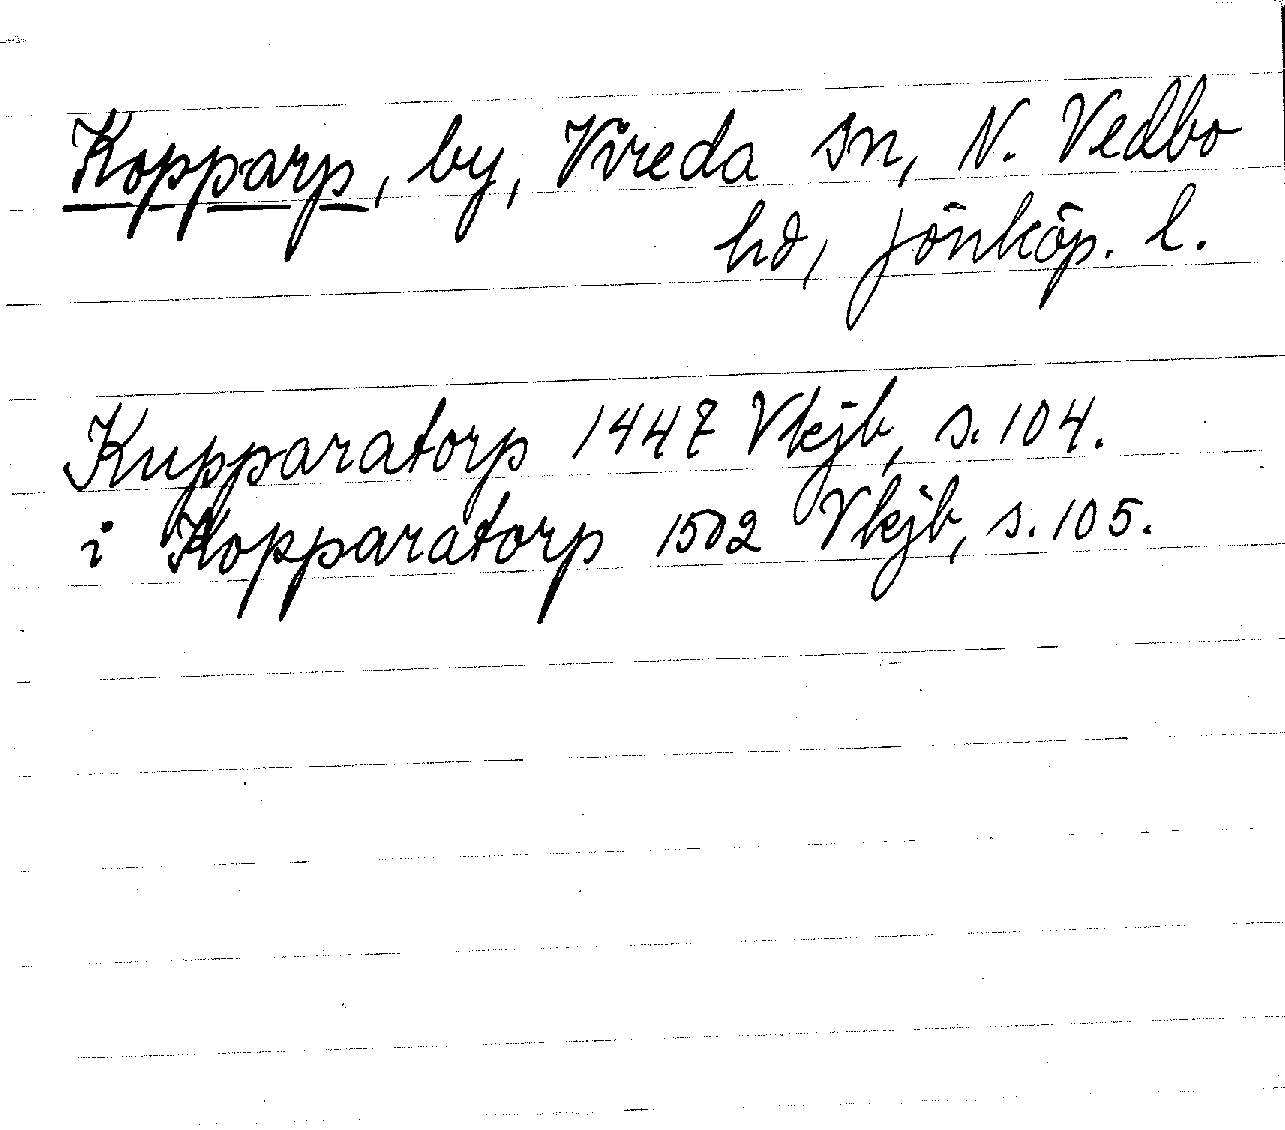 Kopparp, by, Vireda sn, N. Vedbo
hd, Jönköp. l.
Kupparatorp 1447 Vkjb, s. 104.
i Kopparatorp 1502 Vkjb, s. 105.